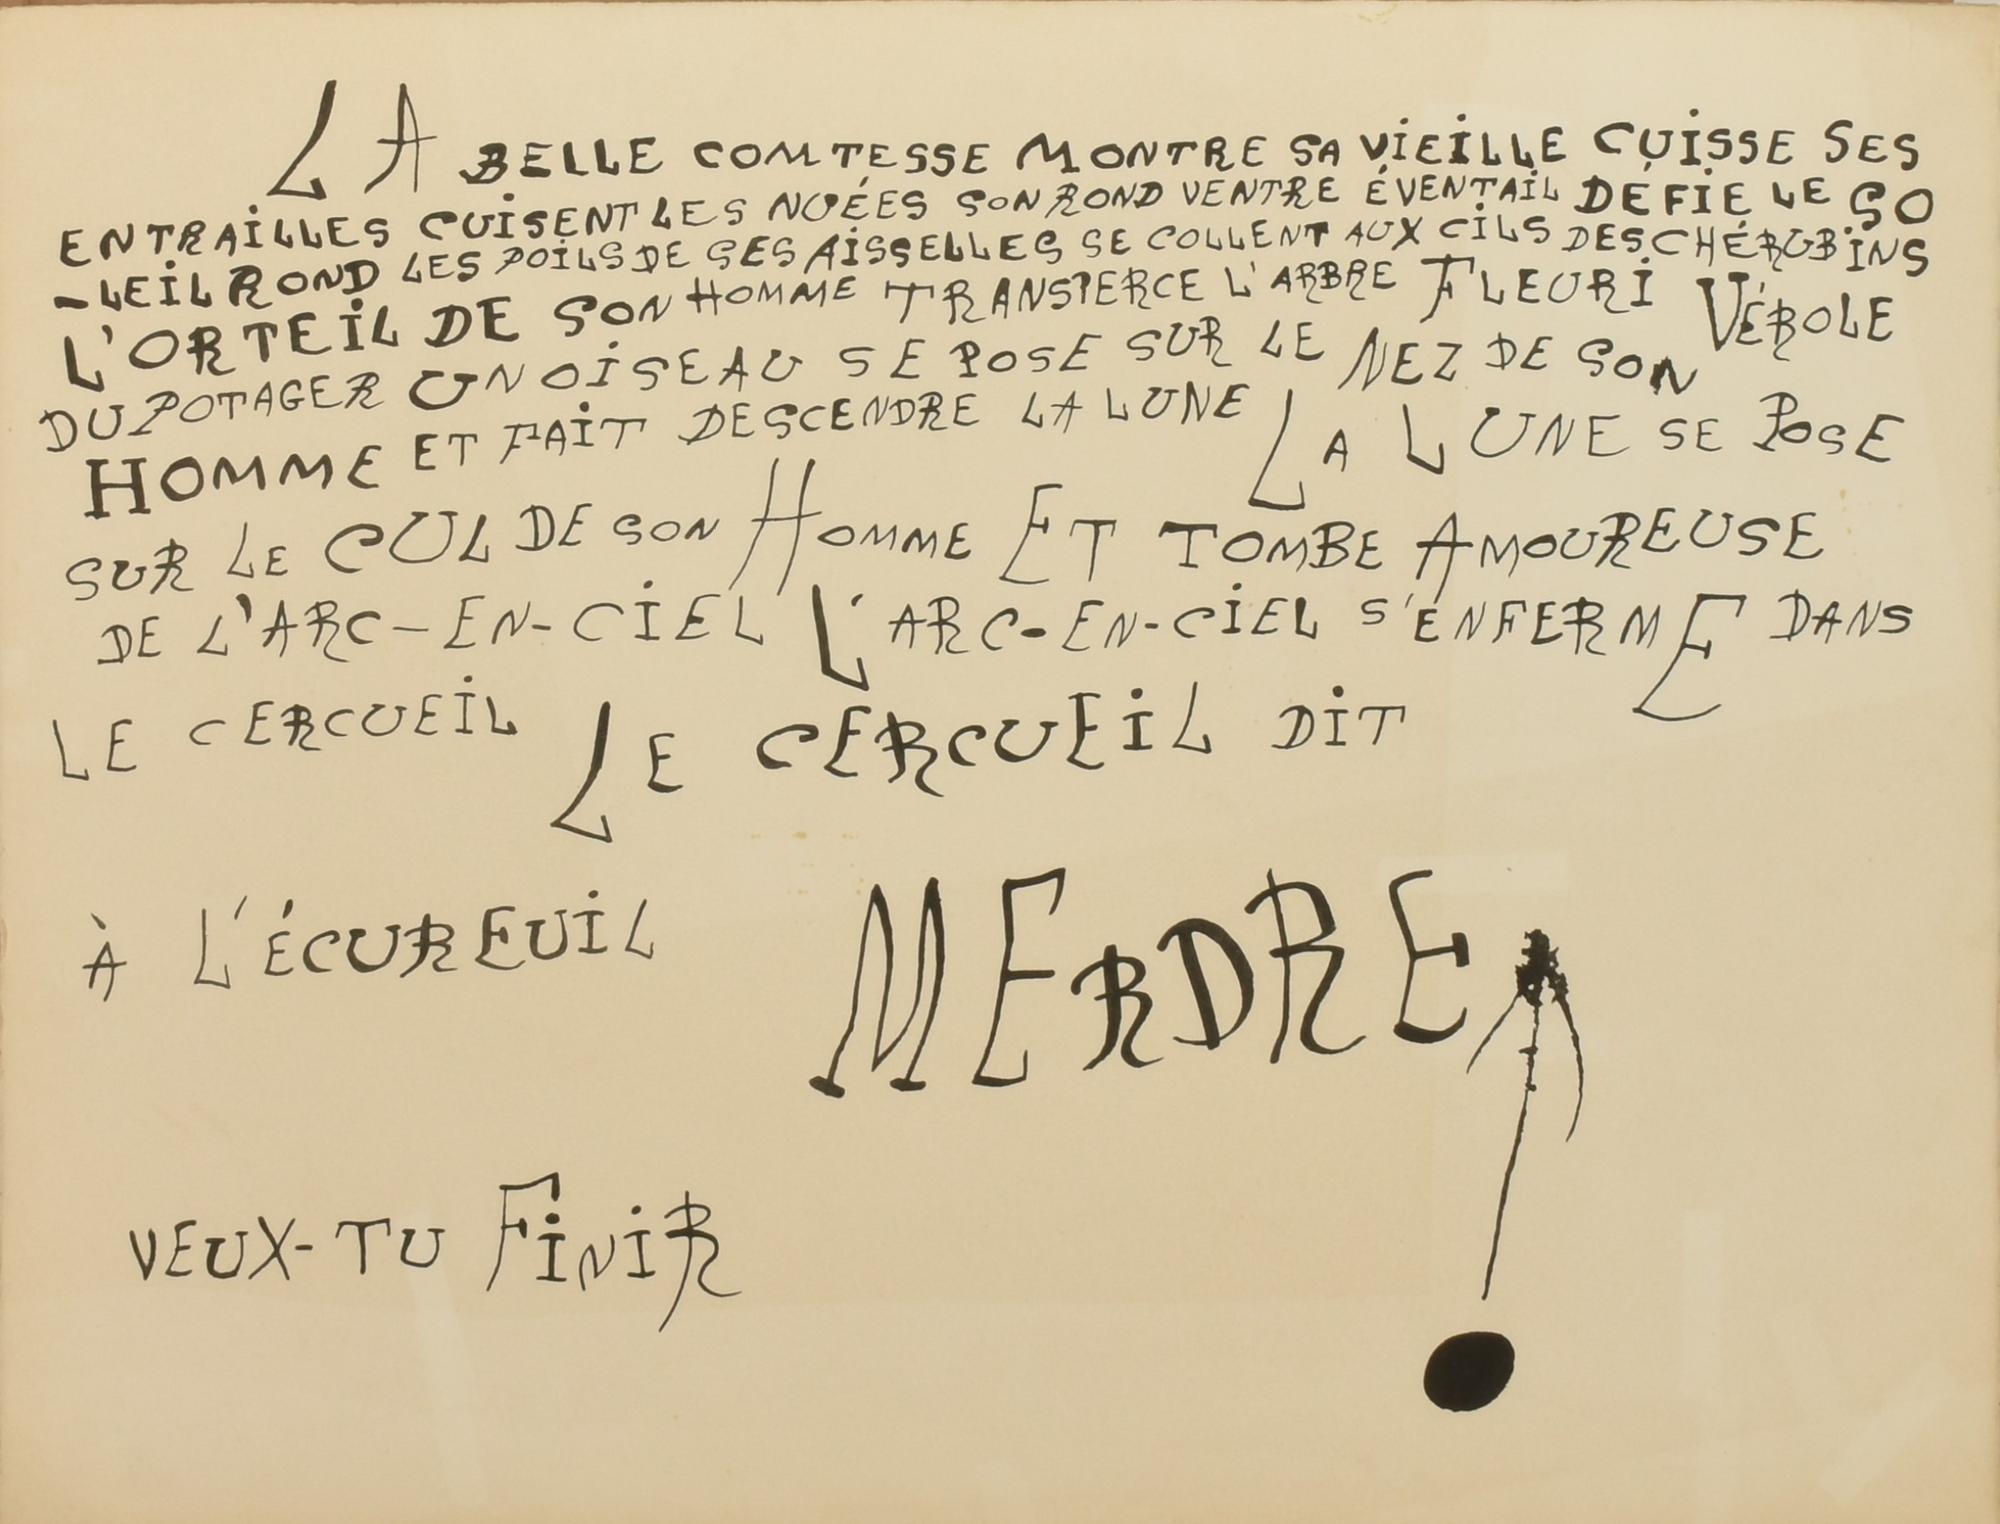 LA BELLE COMTESSE MONTRE SA VIEILLE CUISSE SES
ENTRAILLES CUISENT LES NUÉES SON ROND VENTRE ÉVENTAIL DÉFIE LE SO
-LEIL ROND LES POILS DE SES AISSELLES SE COLLENT AUX CILS DES CHÉRUBINS
L'ORTEIL DE SON HOMME TRANSPERCE L'ARBRE FLEURI VÉROLE
DU POTAGER UN OISEAU SE POSE SUR LE NEZ DE SON
HOMME ET FAIT DESCENDRE LA LUNE LA LUNE SE POSE
SUR LE CUL DE SON HOMME ET TOMBE AMOUREUSE
DE L'ARC-EN-CIEL L'ARC-EN-CIEL S'ENFERME DANS
LE CERCUEIL LE CERCUEIL DIT
À L'ÉCUREUIL MERDRE !
VEUX-TU FINIR